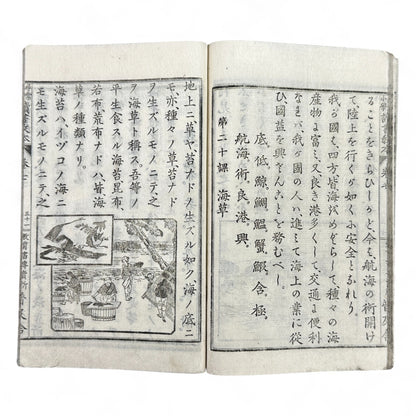 ることをきらひしかど今ミ航海の術開け
て、陸上を行くが如く小安全となれり。
我が國ミ、四方皆海小めぐらして、種々の海
産物ミ富ミ、又良き港多くして、交通ミ便利
なれバ、我が國の人ハ、進ミて海上の業に從
ひ、國益を興さんことを務むべし。
底、低、鯨、鯛、鰮、蟹、鰕、含、極、
航、海、術、良、港、興、
第二十課 海草
地上ニ草ヤ苔ナドノ生ズル如ク海ノ底ニ
モ、亦種々ノ草、苔ナド
ノ生ズルモノニテ、之
ヲ海草ト稱ス。吾等ガ
平生食スル海苔、昆布、
若布、荒布ナドハ、皆海
草ノ種類ナリ。
海苔ハ、イヅコノ海ニ
モ生ズルモノニテ、之